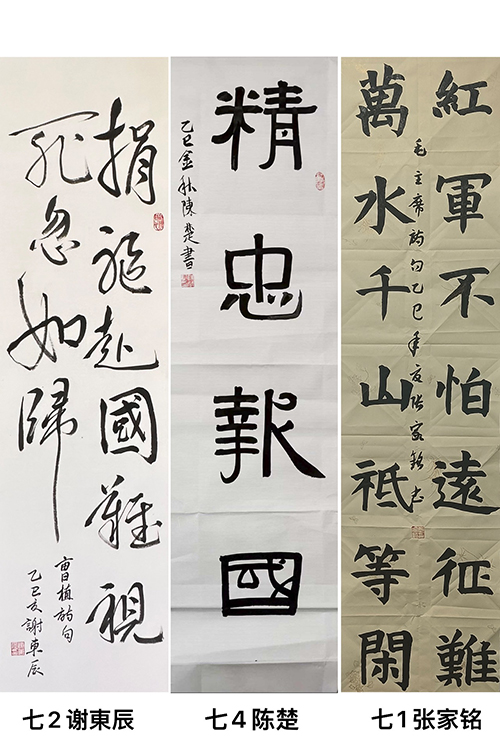 捐軀赴國難視
死忽如歸
曹植詩句
乙巳夏謝東辰
精忠報國
乙巳金秋陳楚書
紅軍不怕遠征難
萬水千山祗等閑
毛主席詩句乙巳年夏張家銘
七2谢東辰
七4陈楚
七1张家铭